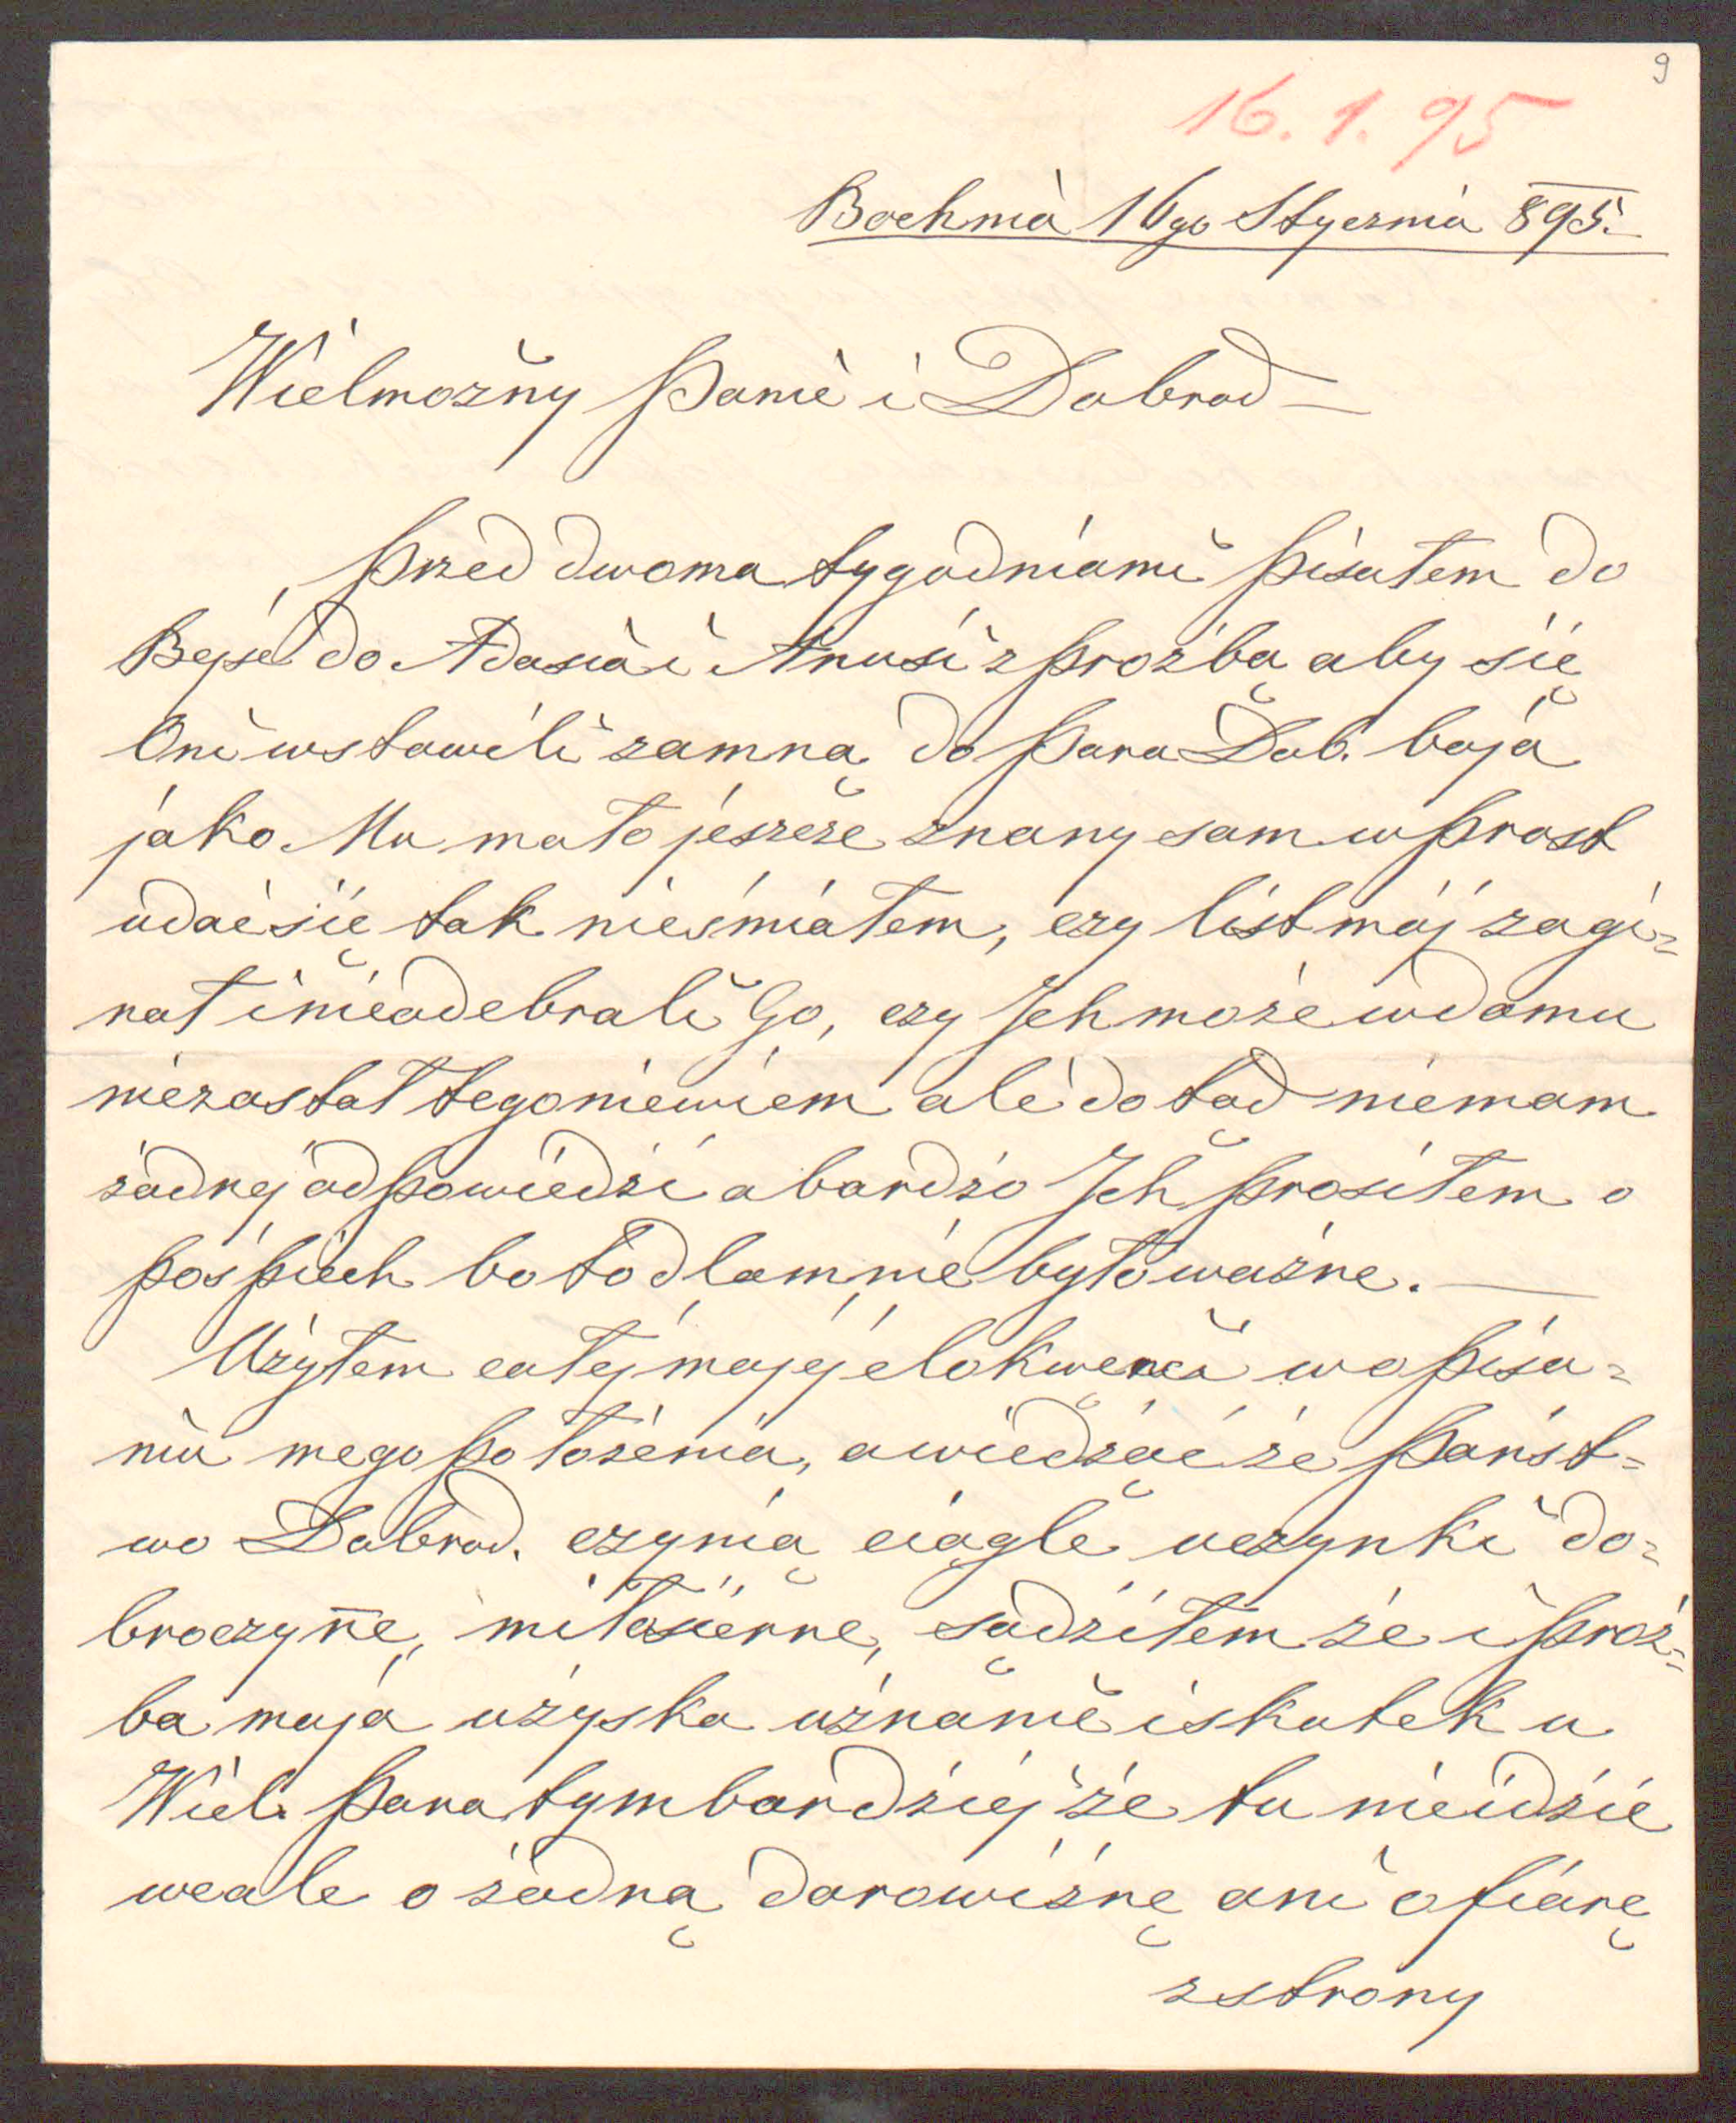 9
16. 1. 95
Bochnia 16go Stycznia 895.
Wielmożny Panie i Dobrod —
Przed dwoma tygodniami pisałem do
Bejsc do Adasia i Anusi z prożbą aby się
Oni wstawili zamną do Pana Dob. boja
jako Mu mało jeszcze znany sam wprost
udać się tak nieśmiałem, czy list mój zagi=
nął i nieodebrali Go, czy Ich może wdomu
niezastał tegoniewiem ale dotąd niemam
żadnej odpowiedzi a bardzo Ich prosiłem o
pośpiech bo to dlamnie było ważne. —
Użyłem całej mojej elokwencĩ w opisa=
niu mego położenia, a wiedząc że Państ=
wo Dobrod. czynią ciągle uczynki do=
broczyn̄e, miłosierne, sądziłem że i proź=
ba moja użyska uznanie i skutek u
Wiel. Pana tymbardziej że tu nieidzie
wcale o żadną darowiznę ani ofiarę
z strony